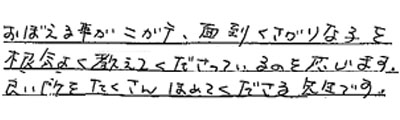 おぼえる事がニガテ、面倒くさがりな子を
根気よく教えてくださっているのを感じます。
良い所をたくさんほめてくださる先生です。